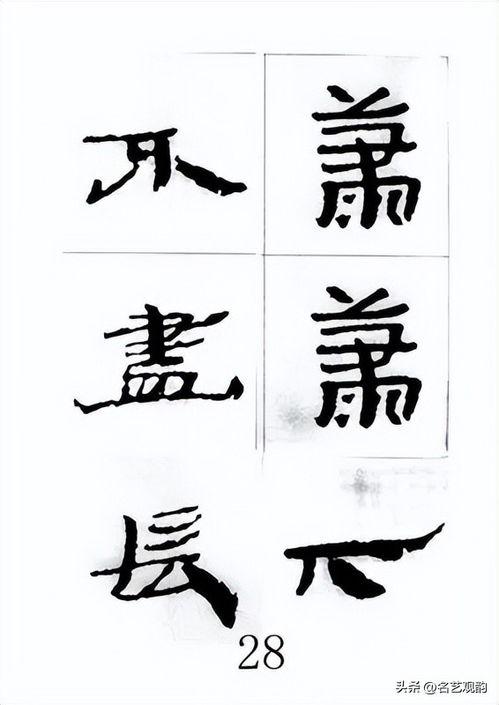 蕭蕭下
不盡長
28
头条 @名艺观韵